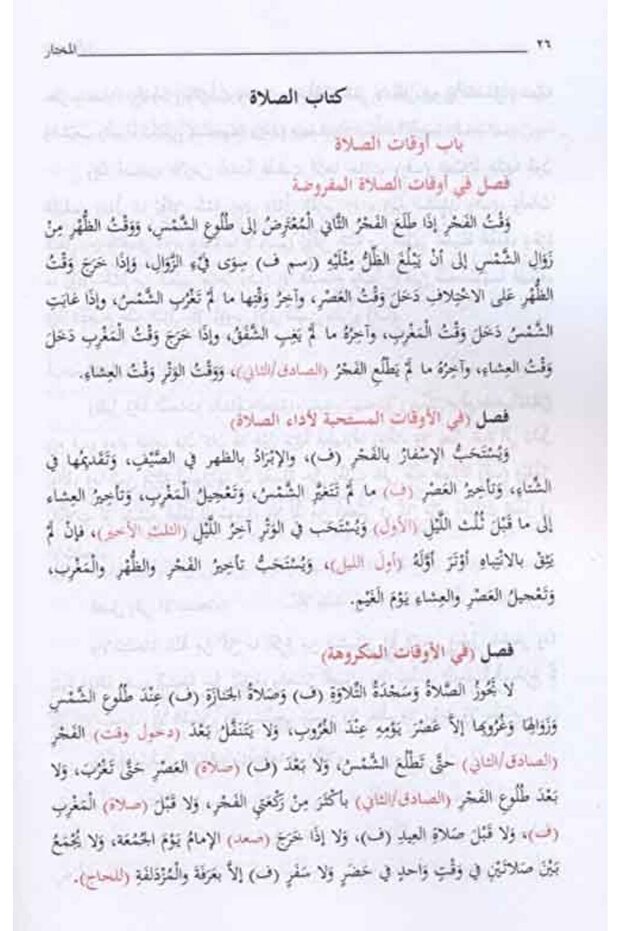 ٢٦ المختار
كتاب الصلاة
باب أوقات الصلاة
فصل في أوقات الصلاة المفروضة
وَقْتُ الْفَجْرِ إِذَا طَلَعَ الْفَجْرُ الثَّانِي الْمُعْتَرِضُ إِلَى طُلُوعِ الشَّمْسِ، وَوَقْتُ الظُّهْرِ مِنْ
زَوَالِ الشَّمْسِ إِلَى أَنْ يَبْلُغَ الظِّلُّ مِثْلَيْهِ (رسم ف) سِوَى فَيْءِ الزَّوَالِ، وَإِذَا خَرَجَ وَقْتُ
الظُّهْرِ عَلَى الاخْتِلَافِ دَخَلَ وَقْتُ الْعَصْرِ، وَآخِرُ وَقْتِهَا مَا لَمْ تَغْرُبِ الشَّمْسُ، وَإِذَا غَابَتِ
الشَّمْسُ دَخَلَ وَقْتُ الْمَغْرِبِ، وَآخِرُهُ مَا لَمْ يَغِبِ الشَّفَقُ، وَإِذَا خَرَجَ وَقْتُ الْمَغْرِبِ دَخَلَ
وَقْتُ الْعِشَاءِ، وَآخِرُهُ مَا لَمْ يَطْلُعِ الْفَجْرُ (الصادق/الثاني)، وَوَقْتُ الْوَتْرِ وَقْتُ الْعِشَاءِ.
فصل (في الأوقات المستحبة لأداء الصلاة)
وَيُسْتَحَبُّ الإِسْفَارُ بِالْفَجْرِ (ف)، وَالإِبْرَادُ بِالظهر فِي الصَّيْفِ، وَتَقْدِيمُهَا فِي
الشِّتَاءِ، وَتَأْخِيرُ الْعَصْرِ (ف) مَا لَمْ تَتَغَيَّرِ الشَّمْسُ، وَتَعْجِيلُ الْمَغْرِبِ، وَتَأْخِيرُ الْعِشَاءِ
إِلَى مَا قَبْلَ ثُلُثِ اللَّيْلِ (الأول) وَيُسْتَحَبُ فِي الْوَتْرِ آخِرُ اللَّيْلِ (الثلث الأخير)، فَإِنْ لَمْ
يَثِقْ بِالانْتِبَاهِ أَوْتَرَ أَوَّلَهُ (أول الليل)، وَيُسْتَحَبُّ تأخِيرُ الْفَجْرِ وَالظُّهْرِ وَالْمَغْرِبِ،
وَتَعْجِيلُ الْعَصْرِ وَالْعِشَاءِ يَوْمَ الْغَيْمِ.
فصل (في الأوقات المكروهة)
لَا تَجُوزُ الصَّلَاةُ وَسَجْدَةُ التِّلَاوَةِ (ف) وَصَلَاةُ الْجَنَازَةِ (ف) عِنْدَ طُلُوعِ الشَّمْسِ
وَزَوَالِهَا وَغُرُوبِهَا إِلاَّ عَصْرَ يَوْمِهِ عِنْدَ الْغُرُوبِ، وَلَا يَتَنَفَّلُ بَعْدَ (دخول وقت) الْفَجْرِ
(الصادق/الثاني) حتَّى تَطْلُعَ الشَّمْسُ، وَلَا بَعْدَ (ف) (صلاة) الْعَصْرِ حَتَّى تَغْرُبَ، وَلَا
بَعْدَ طُلُوعِ الْفَجْرِ (الصادق/الثاني) بأكْثَرَ مِنْ رَكْعَتَيِ الْفَجْرِ، وَلَا قَبْلَ (صلاة) الْمَغْرِبِ
(ف)، وَلَا قَبْلَ صَلَاةِ الْعِيدِ (ف)، وَلَا إِذَا خَرَجَ (صعد) الإِمَامُ يَوْمَ الْجُمُعَة، وَلَا يُجْمَعُ
بَيْنَ صَلَاتَيْنِ فِي وَقْتٍ وَاحِدٍ فِي حَضَرٍ وَلَا سَفَرٍ (ف) إِلاَّ بِعَرَفَةَ وَالْمُزْدَلِفَةِ (للحاج).